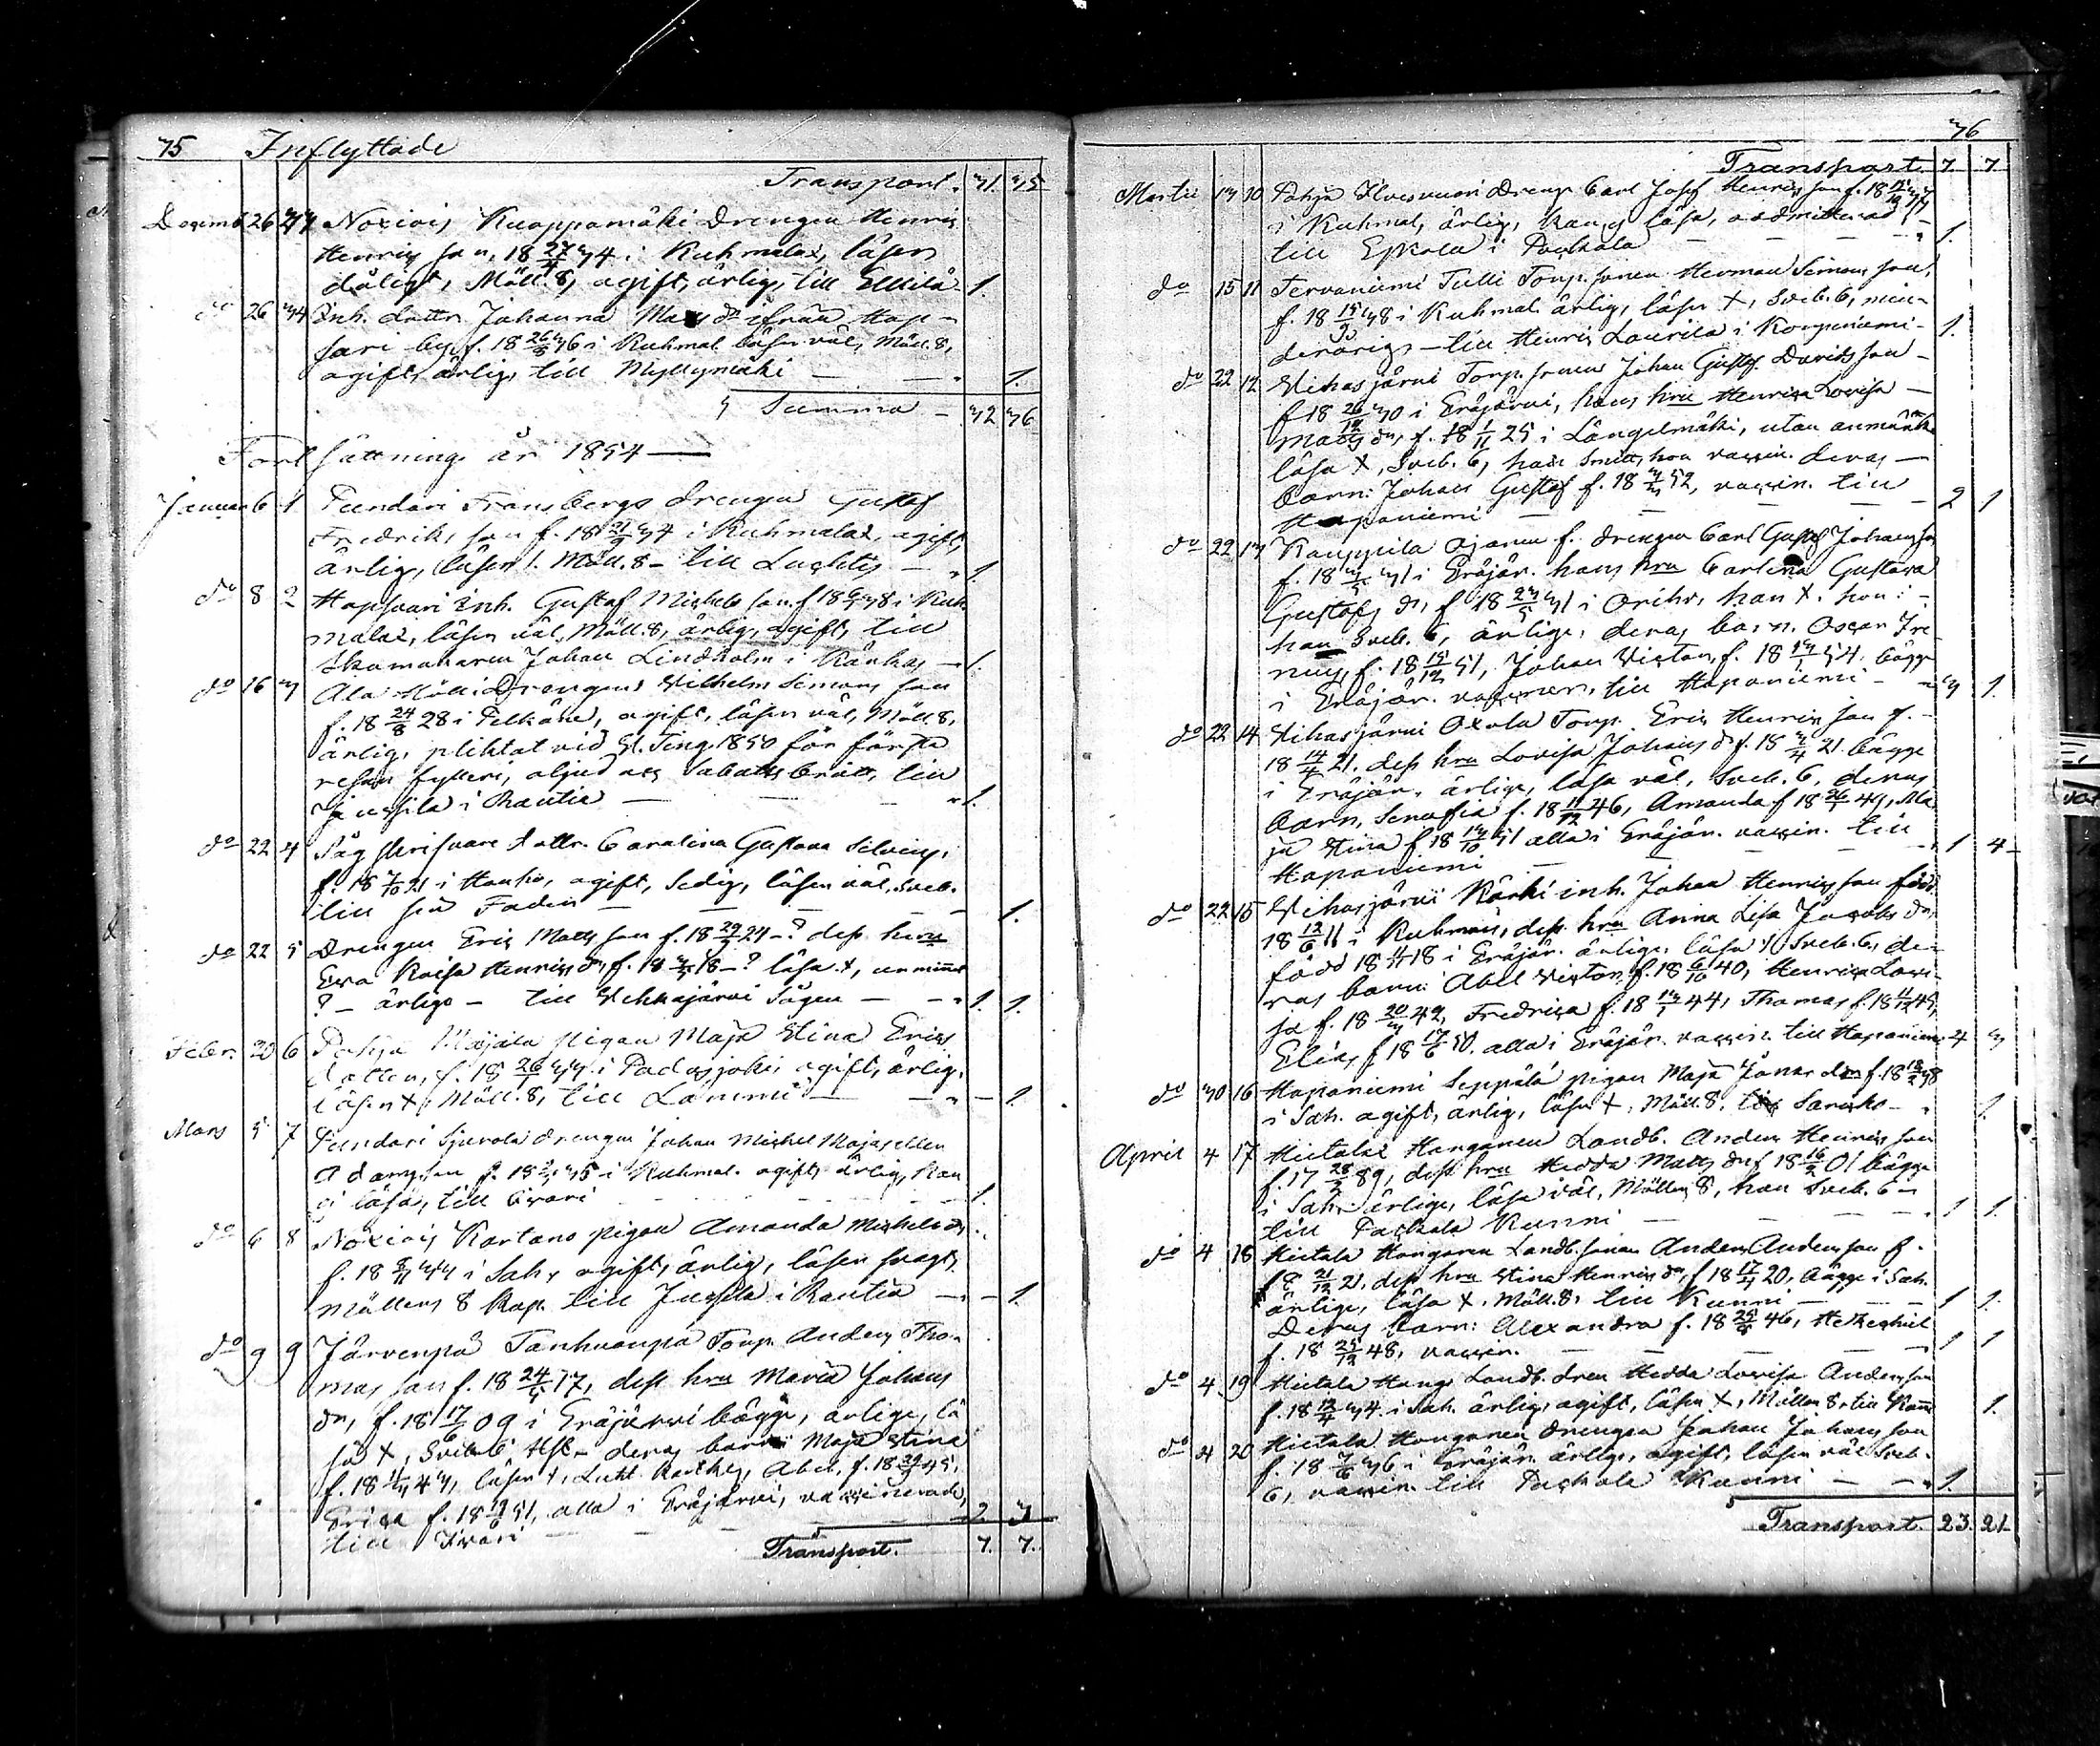 75 Inflyttade
Transport. 31. 35
Decemb 26 33 Noxiois Kuoppamäki Drengen Henric
Henrics son, 18 27/4 34 i Kuhmalax, läsen
dåligt, Möll. 8, ogift, ärlig, till Ellilä 1.
do 26 34 Inh. dottr. Johanna Mats dr ifrån Hap-
sari by, f. 18 26/8 36 i Kuhmal. läsen väl, Möll. 8,
ogift, ärlig, till Myllymäki — — 1.
Summa — 32 36
Fortsättning år 1854 —
Januar 6 1. Pundari Fransbergs drengen Gustaf
Fredrics son f. 18 21/9 34 i Kuhmalax, ogift,
ärlig, läsen /. Möll. 8 — till Luchtis — 1.
do 8 2 Hapsvari Inh. Gustaf Michels son f. 18 38 i Kuh
malax, läsen väl, Möll. 8, ärlig, ogift, till
Skomakaren Johan Lindholm i Känhas — 1.
do 16 3 Ala Mölli Drengen Vilhelm Simons son
f. 18 24/8 28 i Pelkäne, ogift, läsen väl, Möll. 8,
ärlig, pliktat vid Ting 1850 för första
resan fylleri, oljud och Sabatts brått, till
Jussila i Rautia — — — 1.
do 22 4 Såg skrifvare dottr. Carolina Gustava
f. 18 7/10 21 i Hauho, ogift, Sedig, läsen väl, Sveb.
till sin Fader — — — — 1.
do 22 5 Drengen Eric Mats son f. 18 29/3 24 — ? dess hru
Eva Kaisa Henrics dr, f. 18 18 — ? läsa +,
? — ärliga — till Vehkajärvi Sågen — — 1. 1.
Febr. 20 6 Pohja Mäjälä pigan Maja Stina Erics
dotter, f. 18 26/1 33 i Padasjoki, ogift, ärlig,
läsen +, Möll. 8, till Lammi — — 1.
Mars 5 7 Pundari Sjuvola drengen Johan Michel
Adams son f. 18 35 i Kuhmal. ogift, ärlig, kan
ej läsa, till — 1.
do 6 8 Noxiois Kartano pigan Amanda Michels dr
f. 18 8/11 33 i Sah., ogift, ärlig, läsen svagt,
Möllers 8 Kap. till Jussila i Rautia — — 1.
do 9 9 Järvenpä Tanhuanpä Torp. Anders Tho-
mas son f. 18 24/4 17, dess hru Maria Johans
dr, f. 18 17/6 09 i Eräjärvi bägge, ärliga, lä
sa +, deras barn: Maja Stina
f. 18 43, läsen +, Luth. Abel, f. 18 45,
Erica f. 18 51, alla i Eräjärvi, vaccinerade,
till 2 3
Transport. 7. 7.
36
Transport. 7. 7
Martii 13 10 Pohja Ilvesvuori Dreng. Carl Josef Henrics son f. 18 33
i Kuhmal, ärlig, kan ej läsa, oadmitterad
till Eskola i Pachala — — — 1.
do 15 11 Tervaniemi Tulli Torp. sonen Herman Simons son,
f. 18 15/9 38 i Kuhmal. ärlig, läsen +, Sveb. 6, min-
derårig — till Henric Laurila i Korpiniemi — 1.
do 22 12 Vihasjärvi Torp. sonen Johan Gustaf Davids son —
f 18 26/12 30 i Eräjärvi, hans hru Henrica Lovisa —
Mats dr, f. 18 1/11 25 i Längelmäki, utan anmärk.
läsa +, Sveb. 6, han smitt, hon vaccin. deras —
barn: Johan Gustaf f. 18 52, vaccin. till
Haponiemi — — — — 2 1
do 22 13 Kauppila Ojanen f. drengen Carl Gustaf Johans son
f. 18 31 i Eräjär. hans hru Carlina Gustava
Gustafs dr, f 18 27/5 31 i Orihv, han +. hon : —
han Sveb. 6, ärliga, deras barn. Oscar Ire
neus, f. 18 15/12 51, Johan Victor, f. 18 13/1 54, bägge
i Eräjär. vacciner, till Haponiemi — 3 1.
do 22 14 Vihasjärvi Oxola Torp. Eric Henrics son f. —
18 14/4 21. dess hru Lovisa Johans dr f. 18 21. bägge
i Eräjär. ärliga, läsa väl, Sveb. 6, deras
barn, Serafia f. 18 11/12 46, Amanda f 18 26/1 49, Ma
ja Stina f 18 13/10 51 alla i Eräjär. vaccin. till
Haponiemi — — — 1 4
do 22 15 Vihasjärvi Kärki inh. Johan Henrics son född
18 12/6 11 i Kuhmois, dess hru Anna Lisa Jacobs dr,
född 18 18 i Eräjär. ärliga, läsa Sveb. 6, de-
ras barn: Abel Victor, f. 18 6/10 40, Henrica Lovi-
sa f. 18 20/3 42, Fredrica f. 18 44, Thomas f. 18 11/12 45,
Elias f 18 17/6 50. alla i Eräjär. vaccin. till Haponiemi 4 3
do 30 16 Haponiemi Seppälä pigan Maja Jonas dr f. 18 38
i Sah. ogift, ärlig, läsa +, Möll. 8. till — 1.
April 4 17 Hietalax Hanganen Landb. Anders Henrics son
f. 17 28/2 89, dess hru Hedda Mats dr f 18 16/2 01 bägge
i Sah. ärliga, läsa väl, Möllers 8, han Sveb. 6 —
till Pachala Kunni — — — 1 1.
do 4 18 Hietala Honganen Landb. sonen Anders Anders son f.
18 21/12 21, dess hru Stina Henrics dr, f 18 17/4 20, bägge i Sah.
ärliga, läsa +, Möll. 8, till Kunni — — 1 1.
Deras barn: Alexandra f. 18 46, Hezechiel
f. 18 25/12 48, vaccin. — — — 1 1
do 4 19 Hietala Hang. Landb. dren Hedda Lovisa Anders
f. 18 12/4 34. i Sah. ärlig, ogift, läsen +, Möllers 8, till Kunni 1.
do 4 20 Hietala Honganen drengen Johan Johans son
f. 18 7/6 36 i Eräjär. ärlig, ogift, läsen väl Sveb.
6, vaccin. till Pachala Kunni — — 1.
Transport. 23. 21.